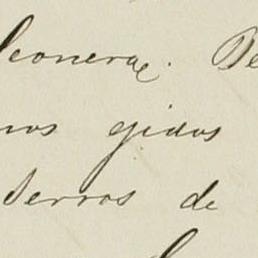 Leonera. De
nos gidos
Serros de